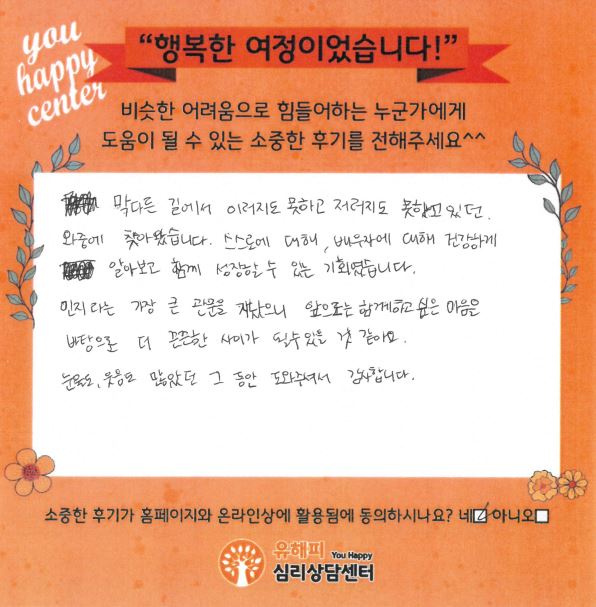 you
happy
center
“행복한 여정이었습니다!”
비슷한 어려움으로 힘들어하는 누군가에게
도움이 될 수 있는 소중한 후기를 전해주세요^^
막다른 길에서 이러지도 못하고 저러지도 못하고 있던
와중에 찾아왔습니다. 스스로에 대해, 배우자에 대해 건강하게
알아보고 함께 성장할 수 있는 기회였습니다.
인지라는 가장 큰 관문을 지났으니 앞으로는 함께하고 싶은 마음을
바탕으로 더 끈끈한 사이가 될 수 있을 것 같아요.
눈물도, 웃음도 많았던 그 동안 도와주셔서 감사합니다.
소중한 후기가 홈페이지와 온라인상에 활용됨에 동의하시나요? 네☑ 아니오☐
유해피 You Happy
심리상담센터